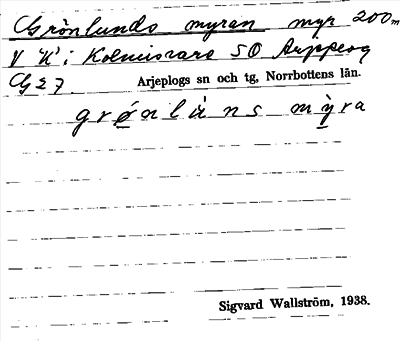 Grönlunds myran myr 200m
V "K" i Kolmisvare SO Arjeplog
G27 Arjeplogs sn och tg, Norrbottens län.
grø̀nlúns mỳra
Sigvard Wallström, 1938.